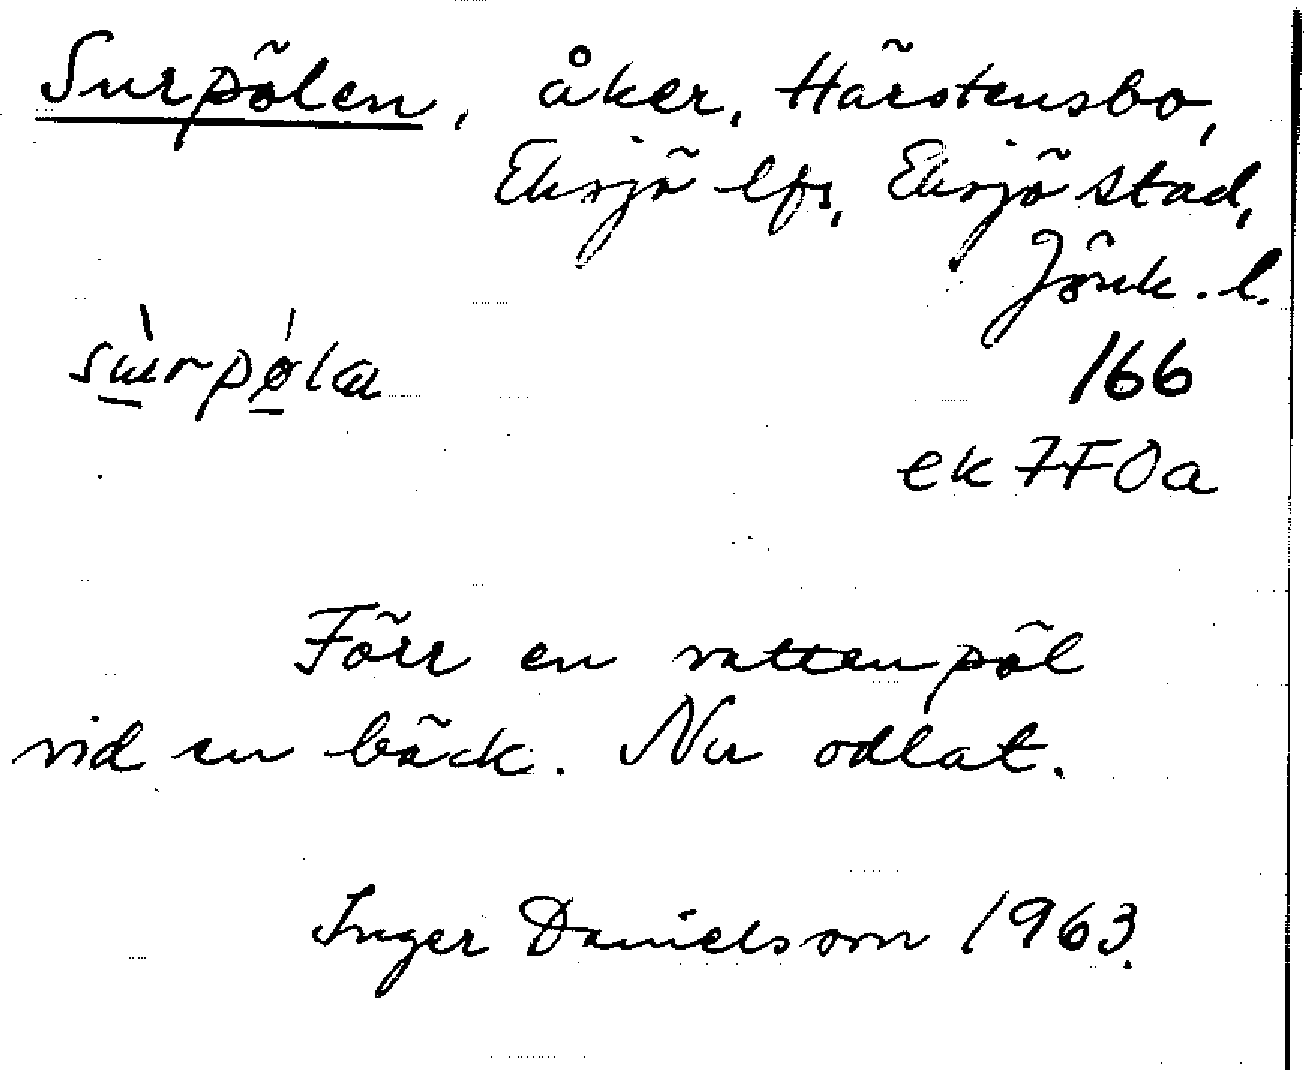 Surpölen, åker, Härstensbo,
Eksjö lfs, Eksjö stad,
Jönk. l.
166
ek 7F0a
Förr en vattenpöl
vid en bäck. Nu odlat.
Inger Danielsson 1963.